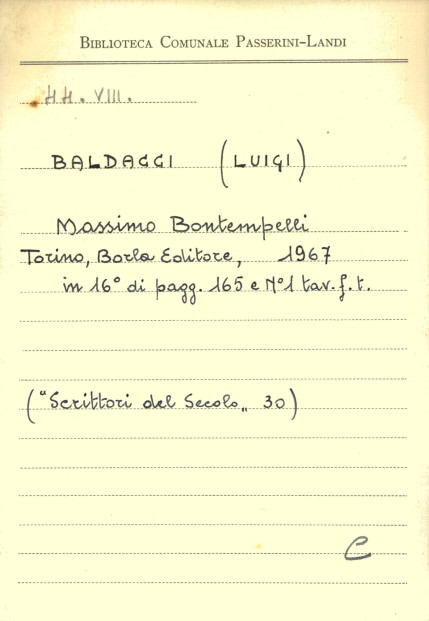 BIBLIOTECA COMUNALE PASSERINI-LANDI
HH. VIII.
BALDACCI (LUIGI)
Massimo Bontempelli
Torino, Borla Editore, 1967
in 16° di pagg. 165 e N°1 tav. f. t.
("Scrittori del Secolo„ 30)
C